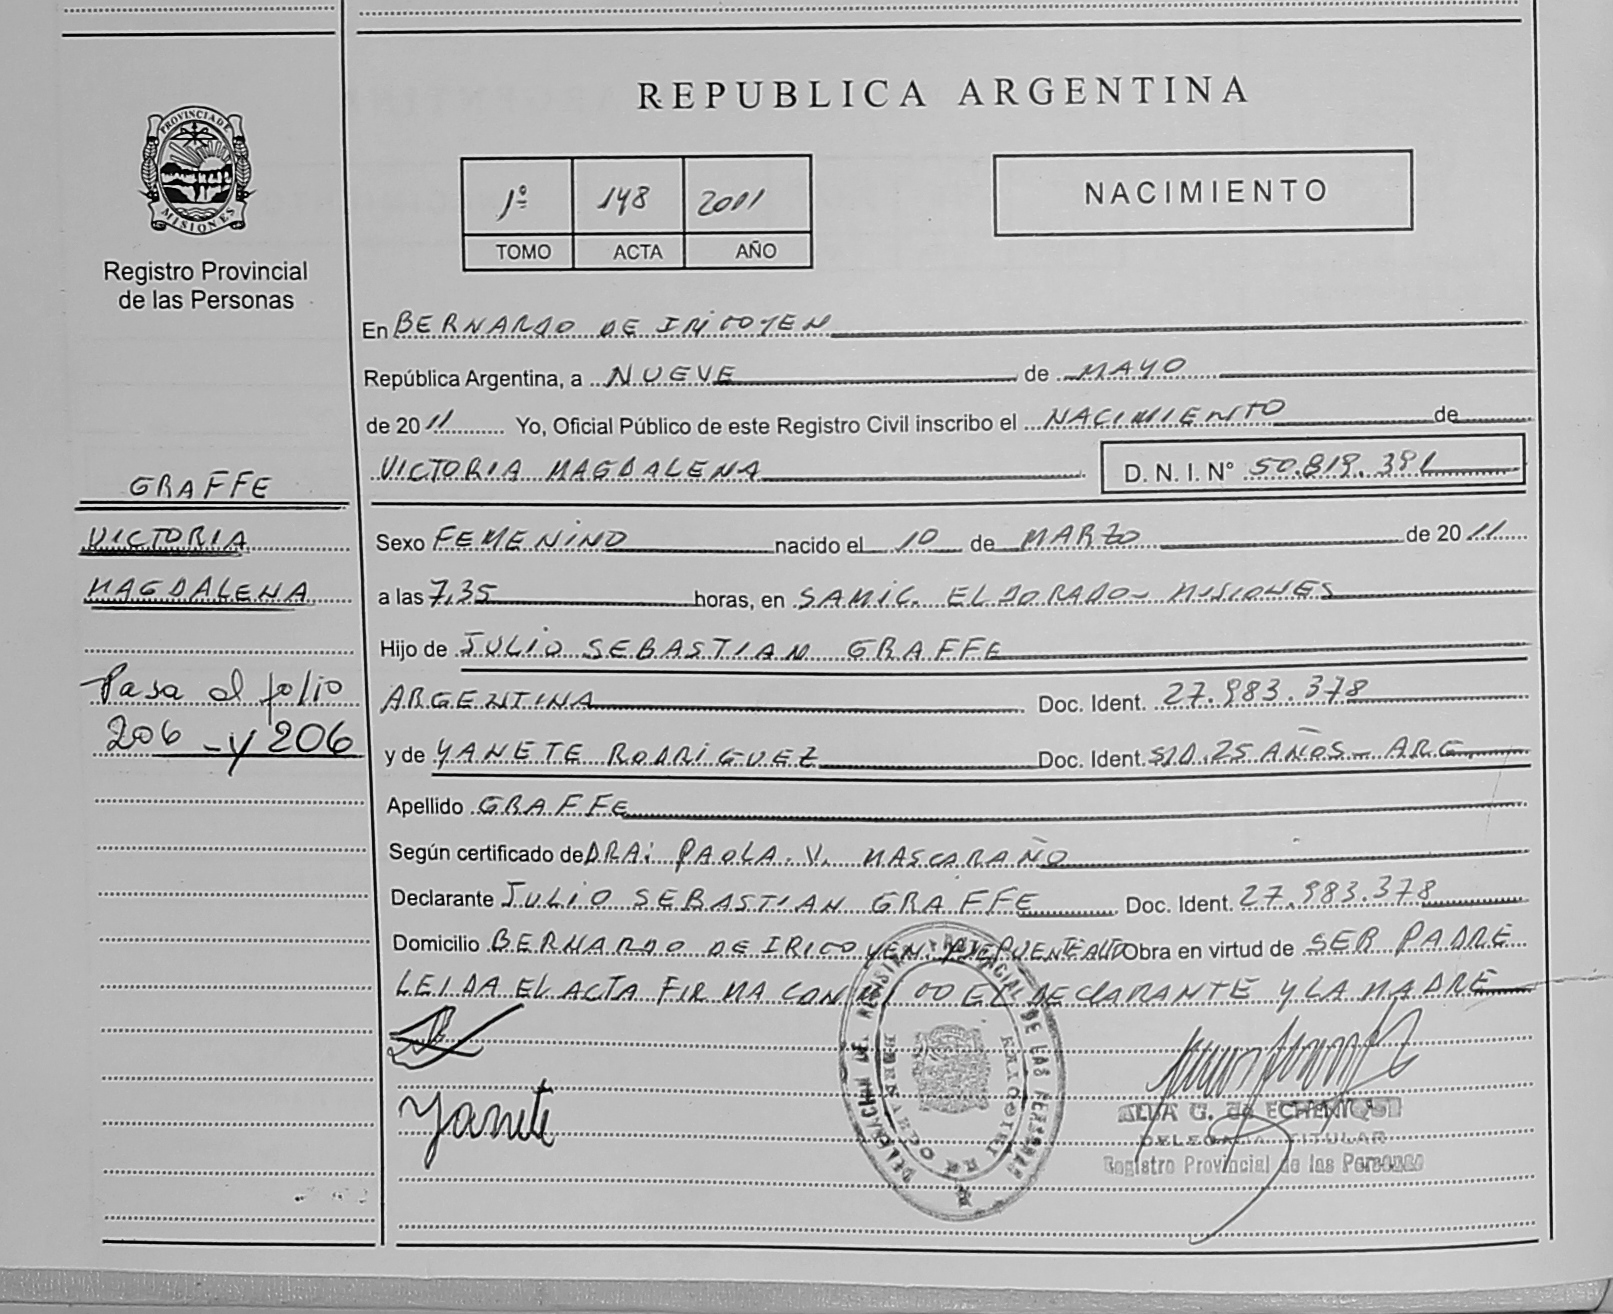 REPUBLICA ARGENTINA
PROVINCIA DE
MISIONES
Registro Provincial
de las Personas
1º 148 2011
TOMO ACTA AÑO
NACIMIENTO
En BERNARDO DE IRIGOYEN
República Argentina, a NUEVE de MAYO
de 2011 Yo, Oficial Público de este Registro Civil inscribo el NACIMIENTO de
VICTORIA MAGDALENA D. N. I. N° 50.819.391
GRAFFE
VICTORIA
MAGDALENA
Pasa al folio
206 - y 206
Sexo FEMENINO nacido el 10 de MARZO de 2011
a las 7,35 horas, en SAMIC. ELDORADO - MISIONES
Hijo de JULIO SEBASTIAN GRAFFE
ARGENTINA Doc. Ident. 27.983.378
y de YANETE RODRIGUEZ Doc. Ident. S/D. 25 AÑOS - ARG
Apellido GRAFFE
Según certificado de DRA: PAOLA. V. MASCARAÑO
Declarante JULIO SEBASTIAN GRAFFE Doc. Ident. 27.983.378
Domicilio BERNARDO DE IRIGOYEN. PUENTE ALTO Obra en virtud de SER PADRE
LEIDA EL ACTA FIRMA CONMIGO EL DECLARANTE Y LA MADRE
Yanete
DELEGACION DE REGISTRO PROVINCIAL DE LAS PERSONAS
BERNARDO DE IRIGOYEN
ALBA G. de ECHENIQUE
DELEGADA TITULAR
Registro Provincial de las Personas